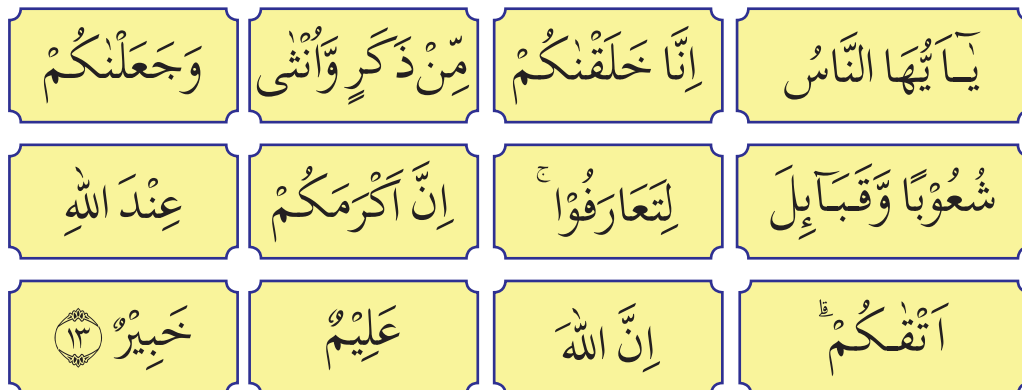 يٰٓـاَ يُّهَا النَّاسُ اِنَّا خَلَقْنٰكُمْ مِّنْ ذَكَرٍ وَّاُنْثٰى وَجَعَلْنٰكُمْ
شُعُوْبًا وَّقَبَـآئِلَ لِتَعَارَفُوْا ۚ اِنَّ اَكْرَمَكُمْ عِنْدَ اللّٰهِ
اَ تْقٰٮكُمْ ؕ اِنَّ اللّٰهَ عَلِيْمٌ خَبِيْرٌ ۝١٣